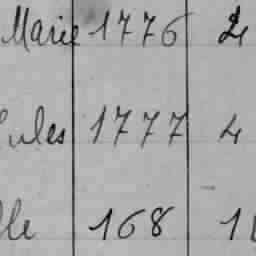 Marie 1776 2
ules 1777 4
lle 168 1